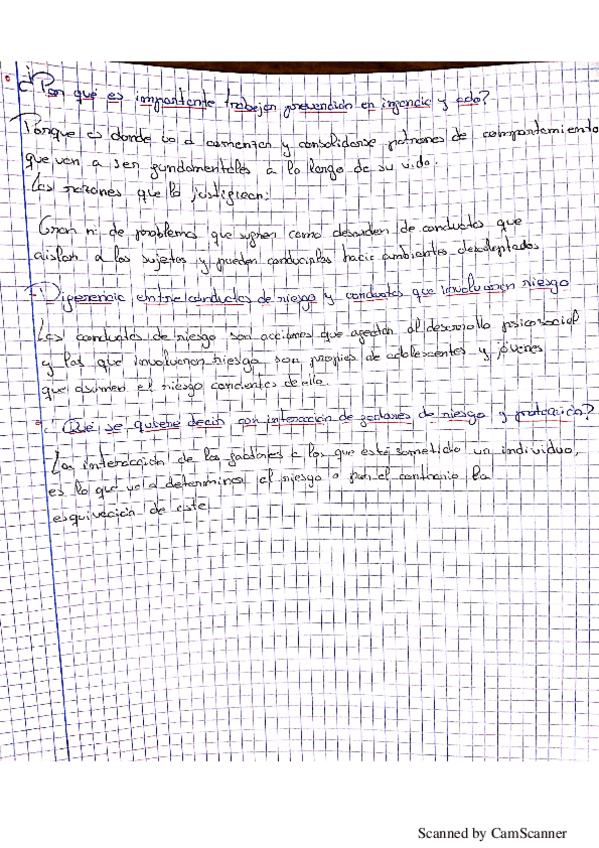 ¿Por qué es importante trabajar prevención en infancia y ado?
Porque es donde va a comenzar y consolidarse patrones de comportamiento
que van a ser fundamentales a lo largo de su vida.
Las razones que lo justifican:
Gran nº de problemas que sufren como desorden de conductas que
aislan a los sujetos y pueden conducirlos hacia ambientes desadaptados
Diferencia entre conductas de riesgo y conductas que involucran riesgo
Las conductas de riesgo son acciones que afectan al desarrollo psicosocial
y las que involucran riesgo son propias de adolescentes y jóvenes
que asumen el riesgo concientes de ello.
¿Qué se quiere decir con interacción de factores de riesgo y protección?
La interacción de los factores a los que está sometido un individuo,
es lo que va a determinar el riesgo o por el contrario la
esquivación de este
Scanned by CamScanner